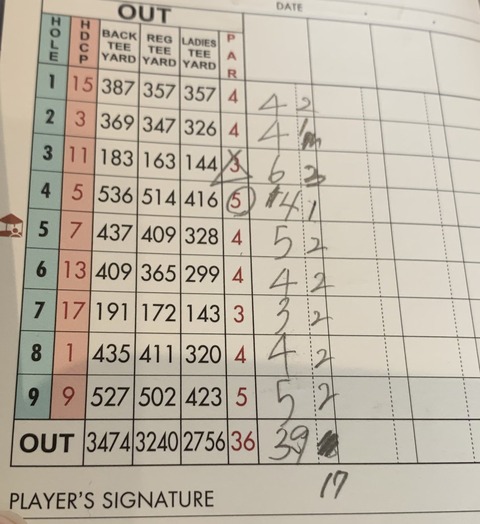 OUT DATE
HOLE HDCP BACK TEE YARD REG TEE YARD LADIES TEE YARD PAR
1 15 387 357 357 4 4 2
2 3 369 347 326 4 4 1
3 11 183 163 144 3 6 3
4 5 536 514 416 5 4 1
5 7 437 409 328 4 5 2
6 13 409 365 299 4 4 2
7 17 191 172 143 3 3 2
8 1 435 411 320 4 4 2
9 9 527 502 423 5 5 2
OUT 3474 3240 2756 36 39
17
PLAYER'S SIGNATURE